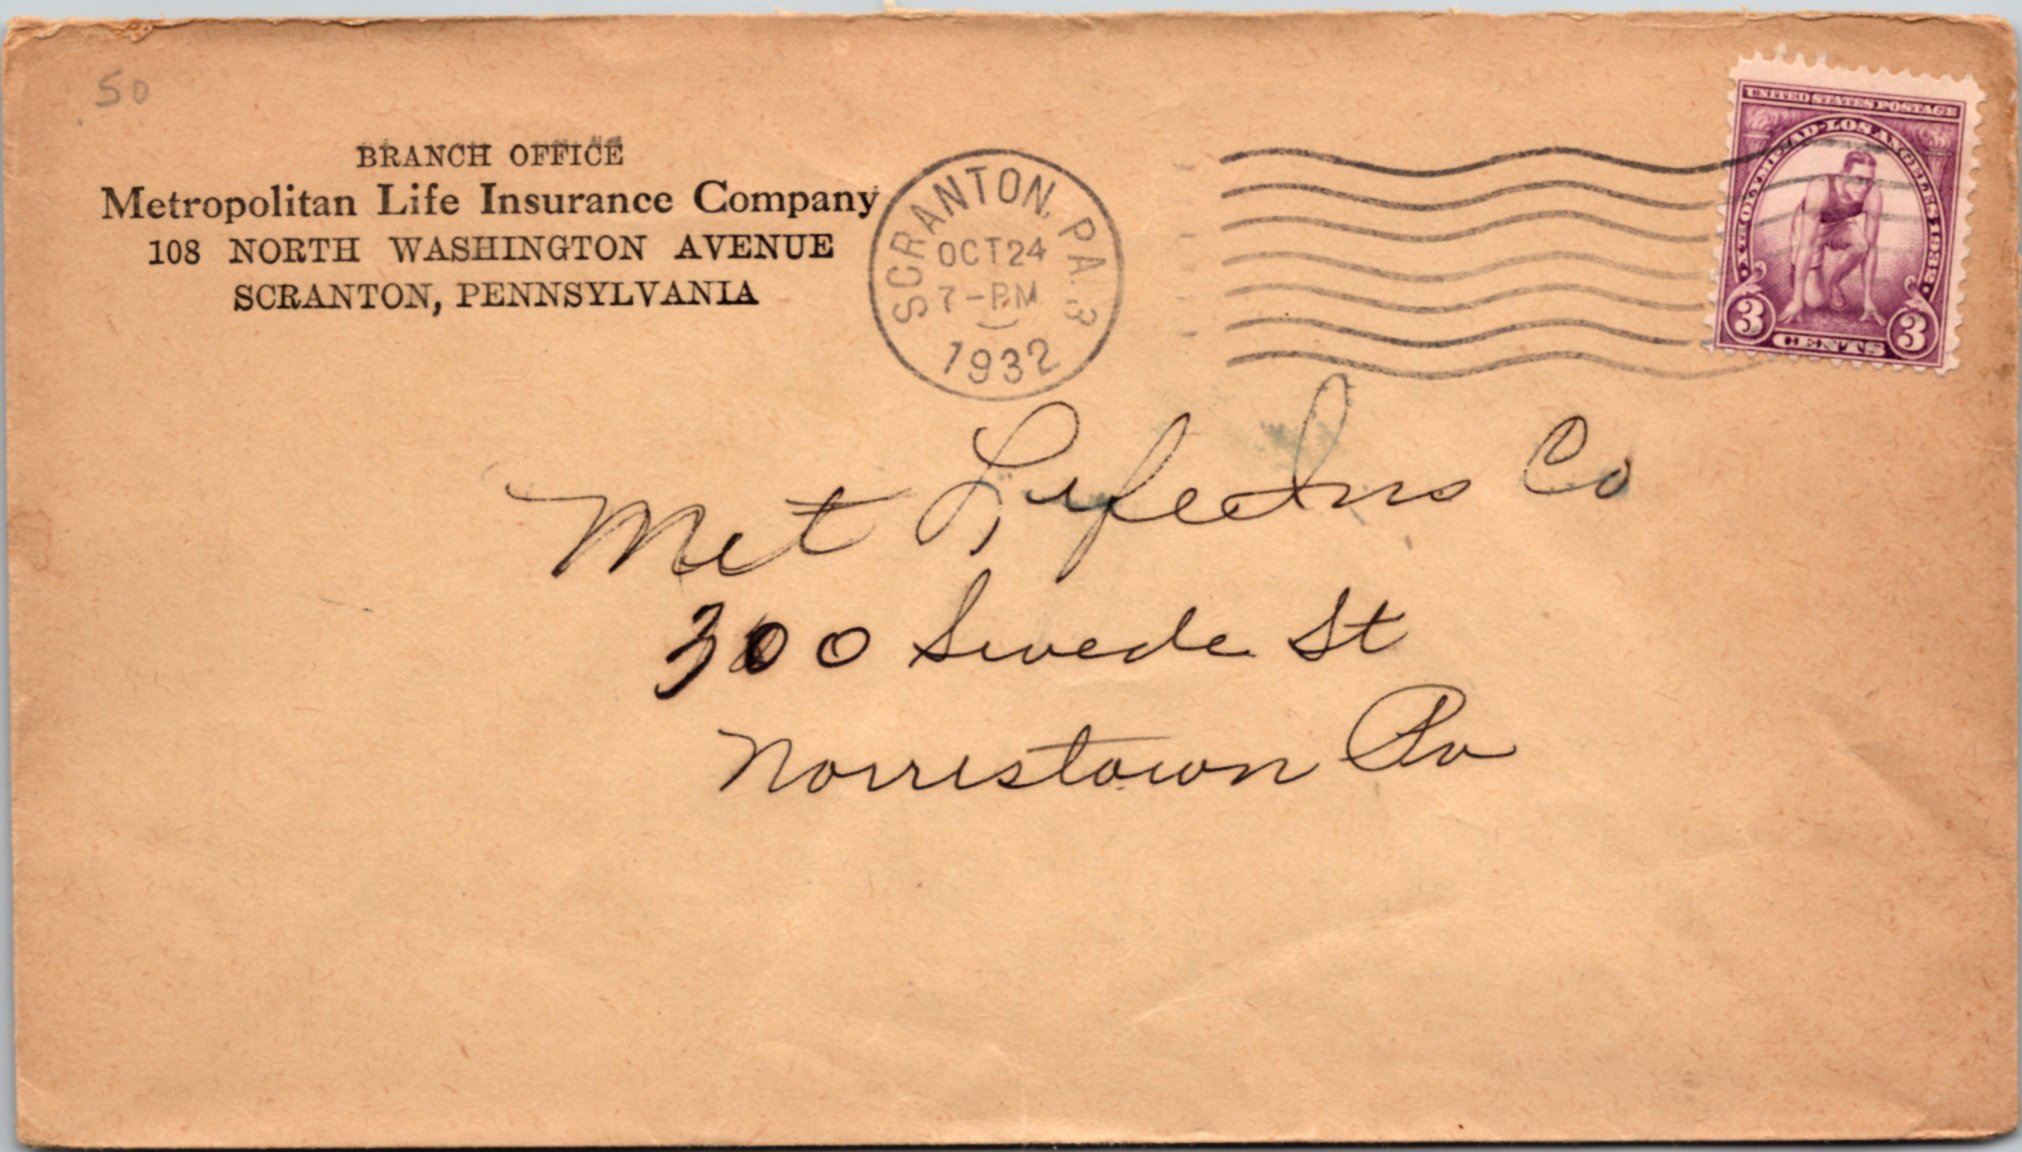 50
BRANCH OFFICE
Metropolitan Life Insurance Company
108 NORTH WASHINGTON AVENUE
SCRANTON, PENNSYLVANIA
SCRANTON, PA. 3
OCT 24
7-PM
1932
UNITED STATES POSTAGE
XTH OLYMPIAD · LOS ANGELES 1932
3 CENTS 3
Met Life Ins Co
300 Swede St
Norristown Pa